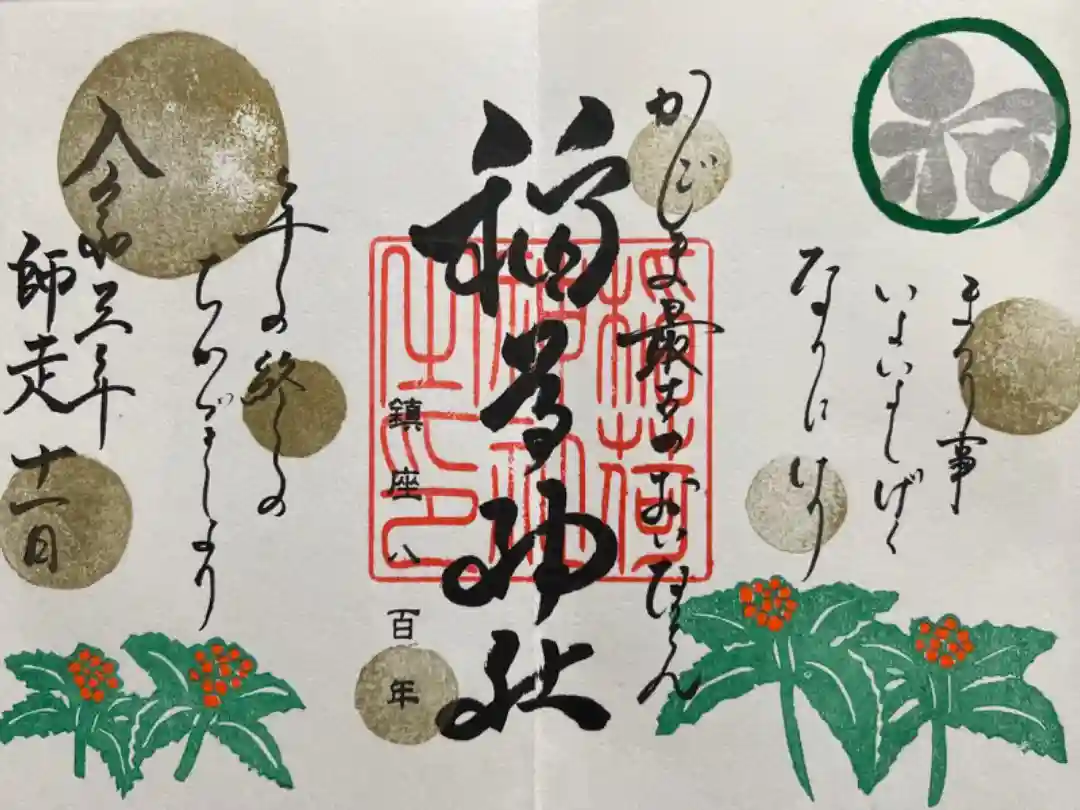 まつり事
いよいよしげく
なりにけり
かごしま最古のおいなりさん
稲荷神社
稲荷
神社
之印
鎮座八百年
年の終りの
ちかづきしより
令和三年
師走十一日